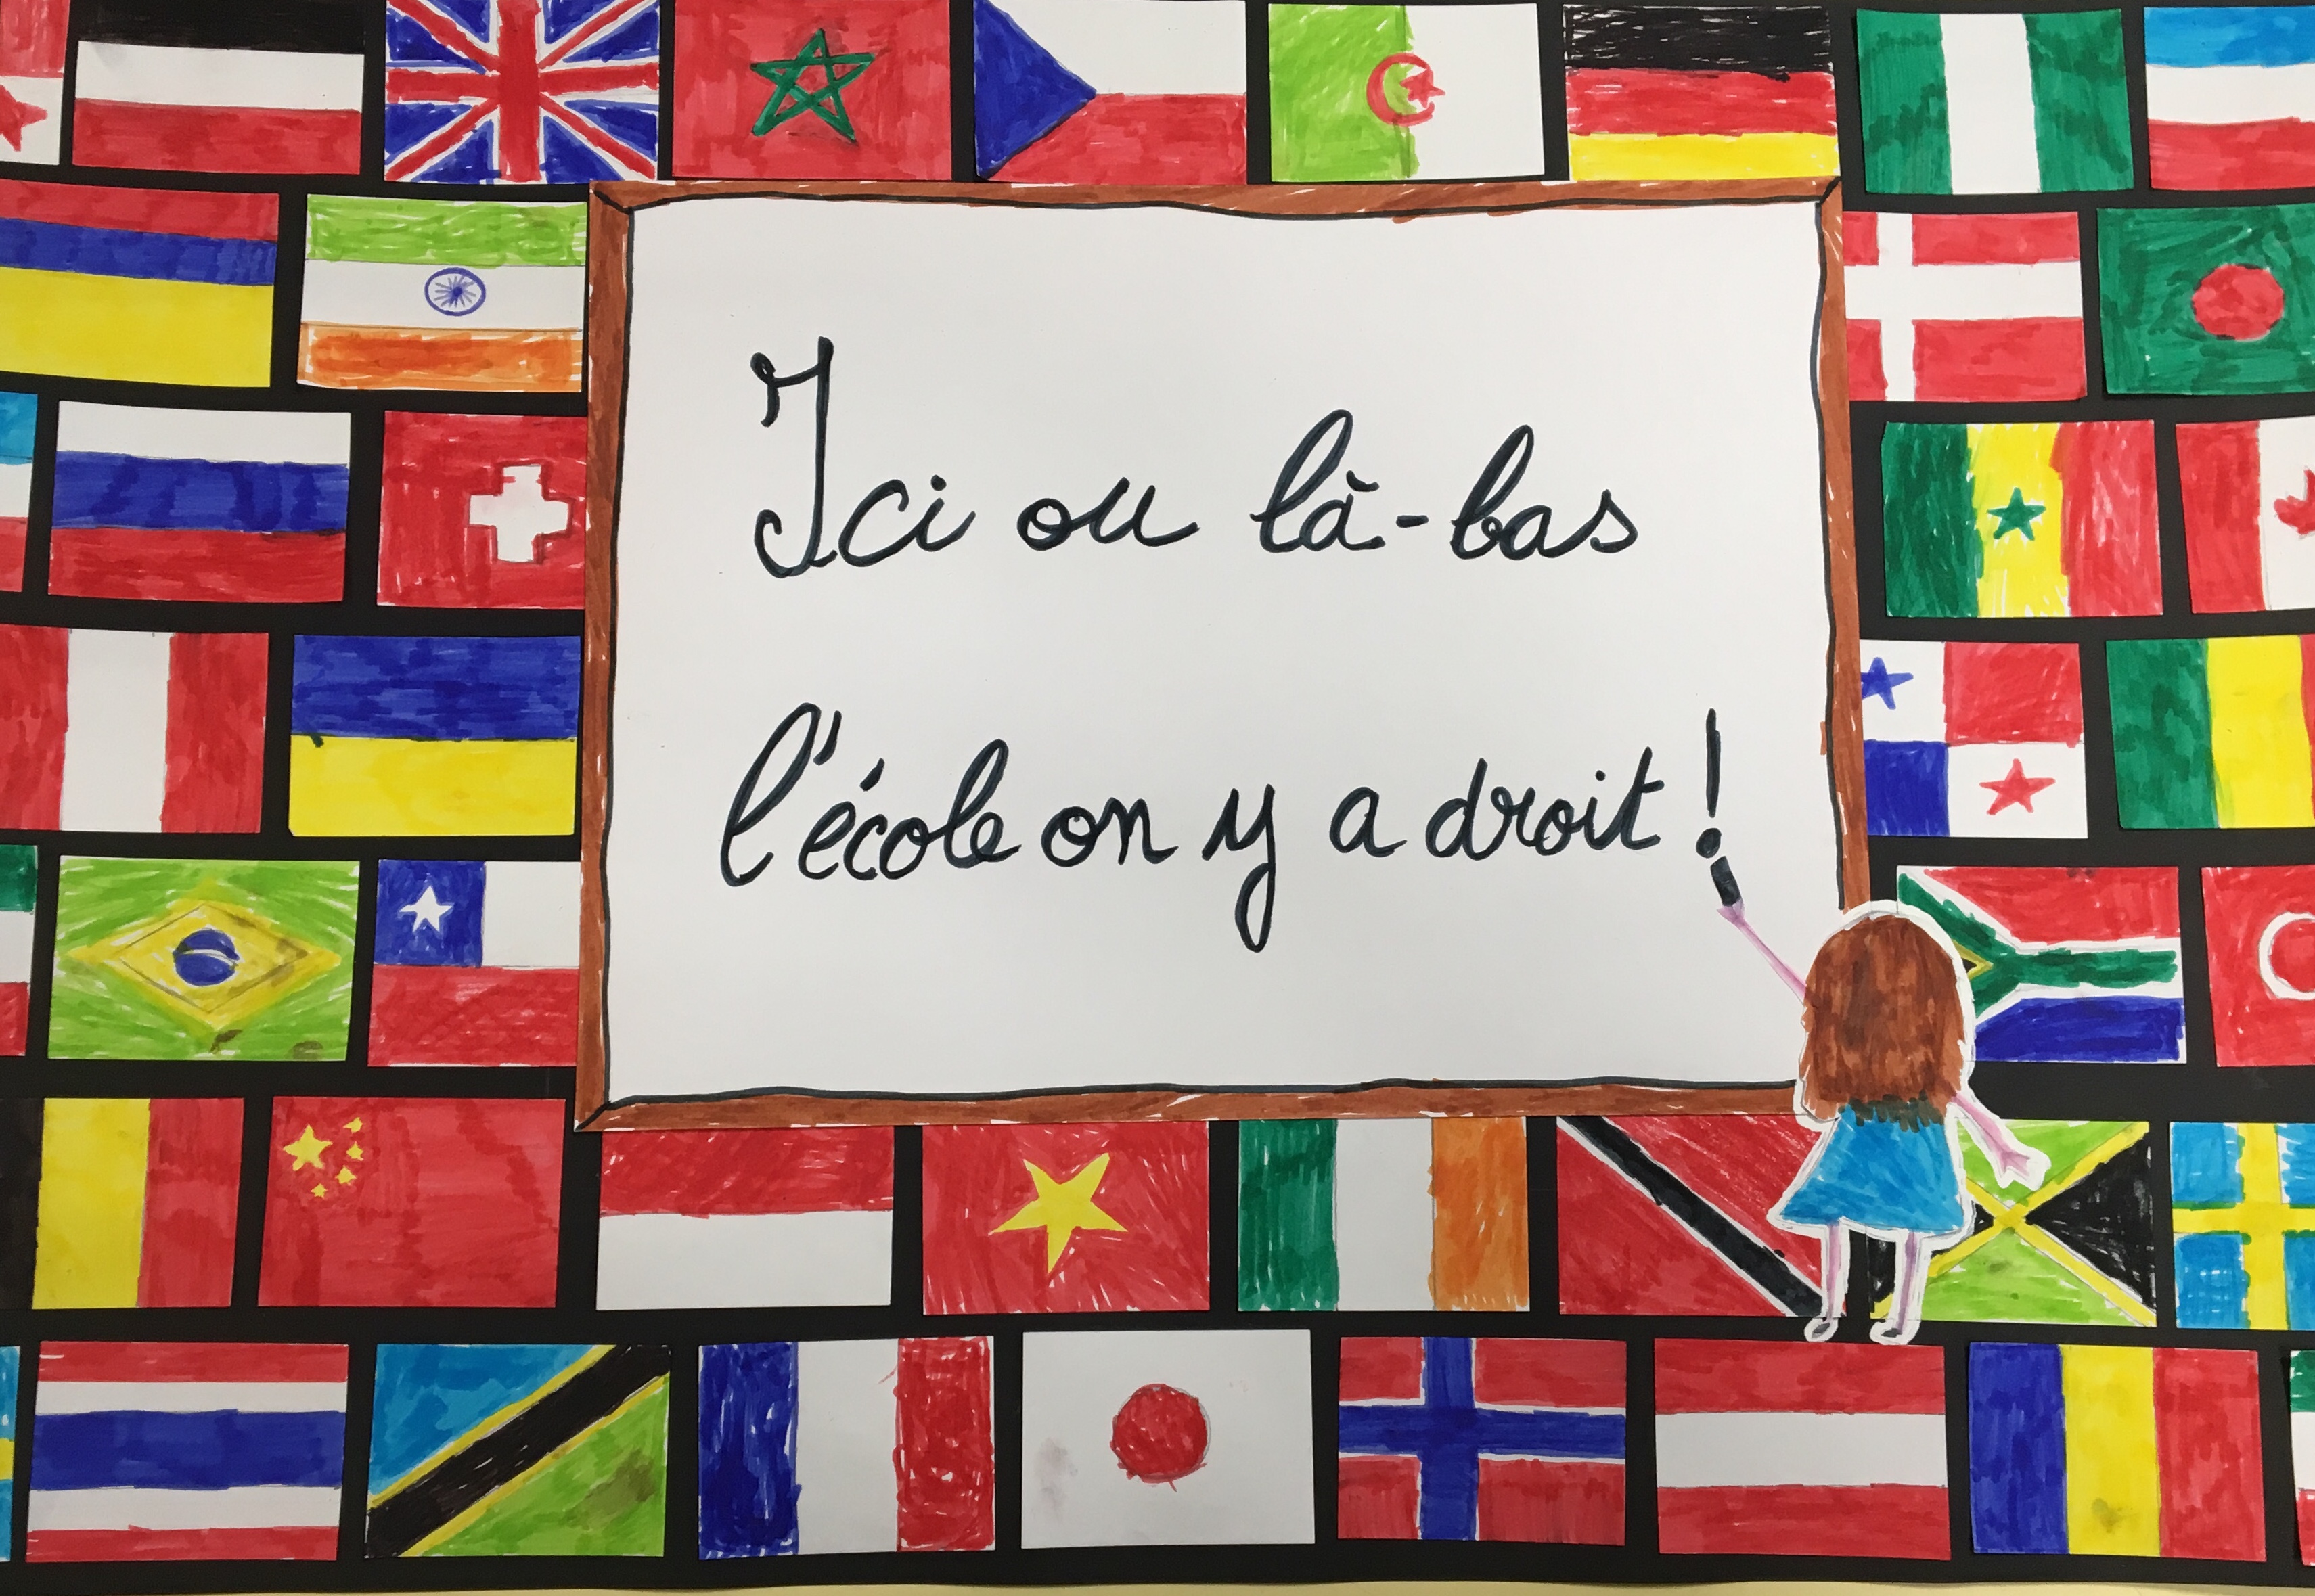 Ici ou là-bas
l'école on y a droit !